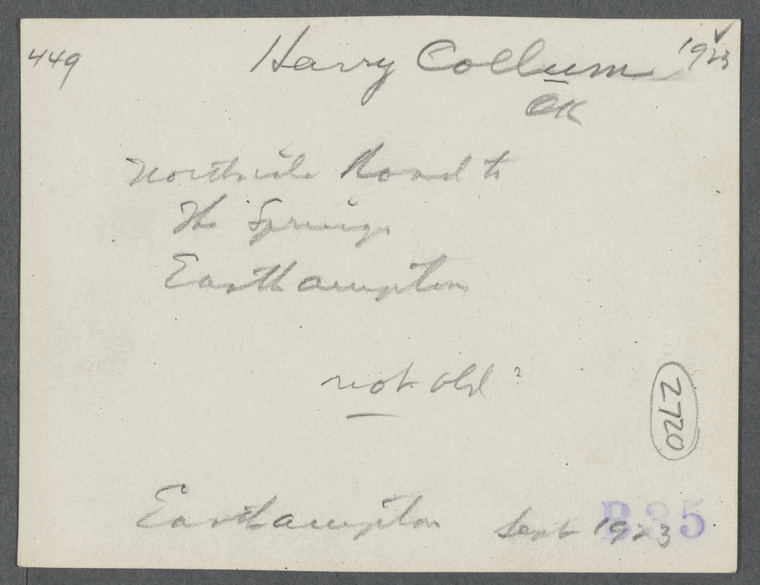 449 Harry Collum 1923
OK
Northside Road to
The Springs
Easthampton
not old?
2720
Easthampton Sept 1923
B35